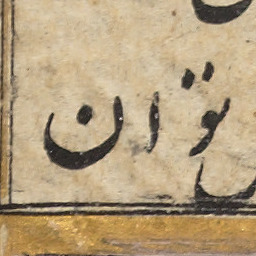 توان